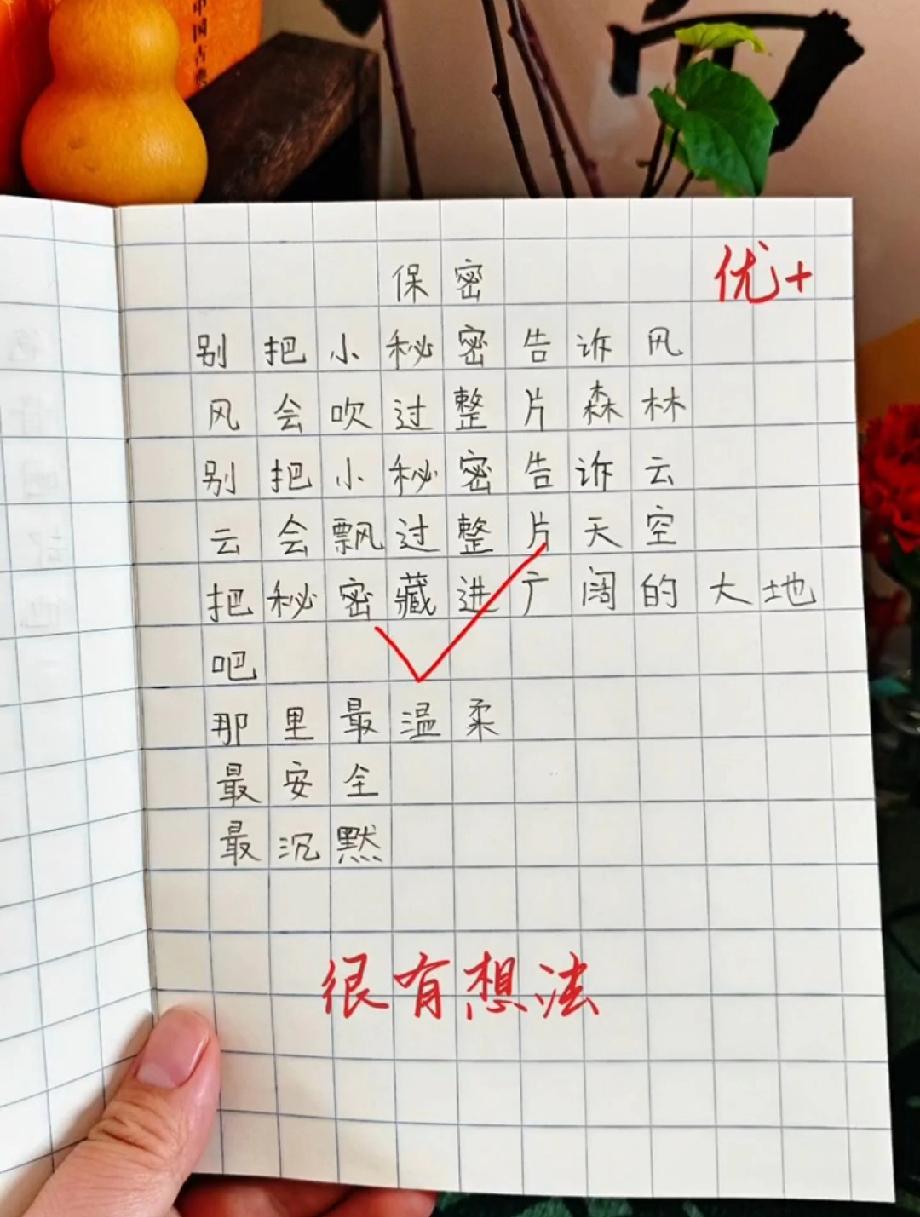 中国古典
保密
优+
别把小秘密告诉风
风会吹过整片森林
别把小秘密告诉云
云会飘过整片天空
把秘密藏进广阔的大地
吧
那里最温柔
最安全
最沉默
很有想法